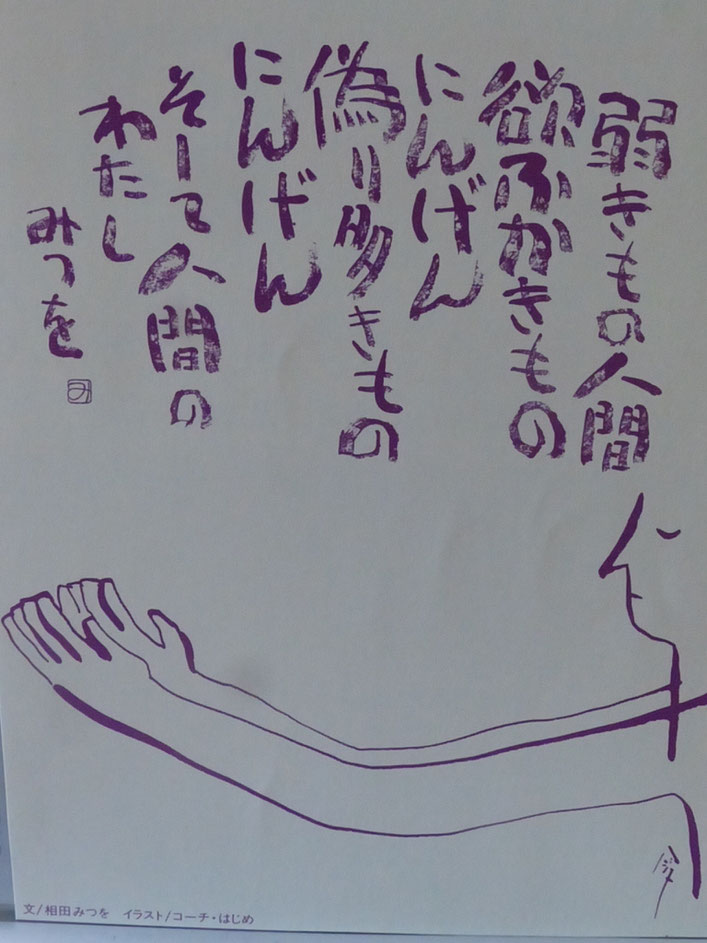 弱きもの人間
欲ふかきもの
にんげん
偽り多きもの
にんげん
そして人間の
わたし
みつを
み
文/相田みつを　イラスト/コーチ・はじめ